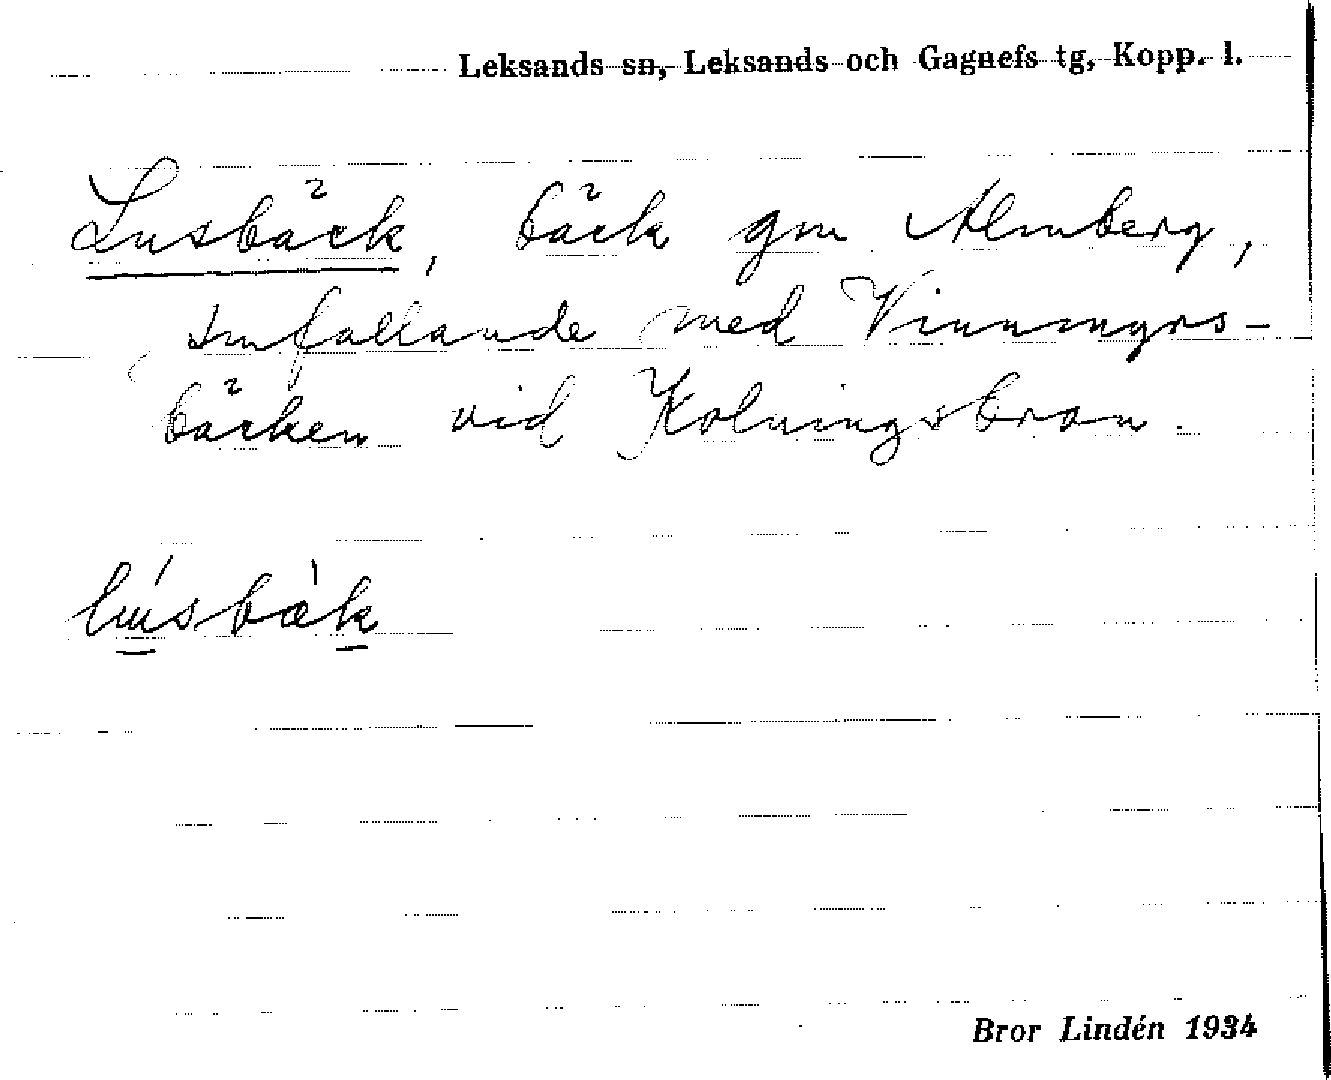 Leksands sn, Leksands och Gagnefs tg, Kopp. l.
Lusbäck, bäck gm Almberg,
smfallande med Vinnmyrs-
bäcken vid Kolningsbron.
Bror Lindén 1934